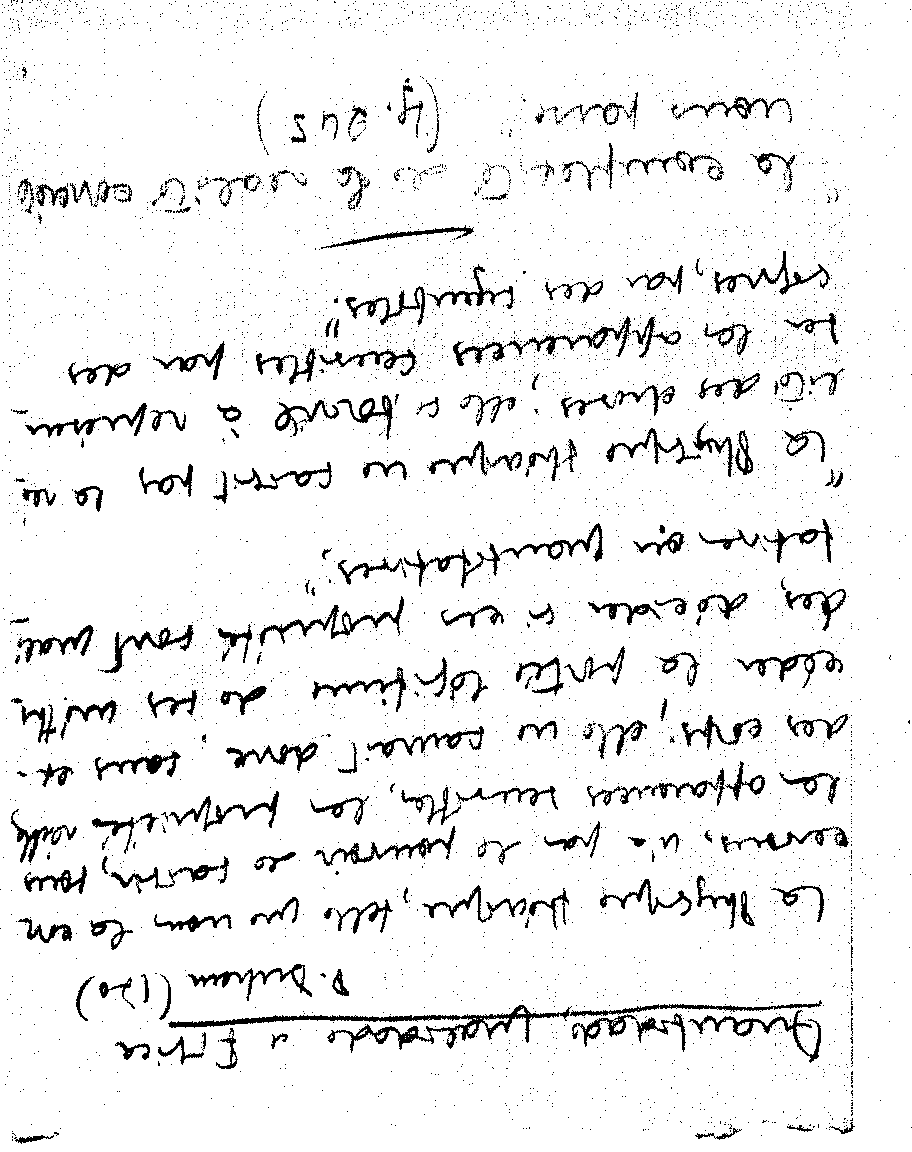 Quantidade, Qualidade e Física
P. Duhem (170)
La Physique théorique, telle que nous la con
cevons, n'a pas le pouvoir de saisir, sous
les apparences sensibles, les propriétés réelles
des corps; elle ne saurait donc, sans ex-
céder la portée légitime de ses métho
des, décider si ces propriétés sont quali-
tatives ou quantitatives."
"La Physique théorique ne saisit pas la réa-
lité des choses; elle se borne à représen-
ter les apparences sensibles par des
signes, par des symboles."
"la complexité de la realité concrète
nous passe" (p. 245)